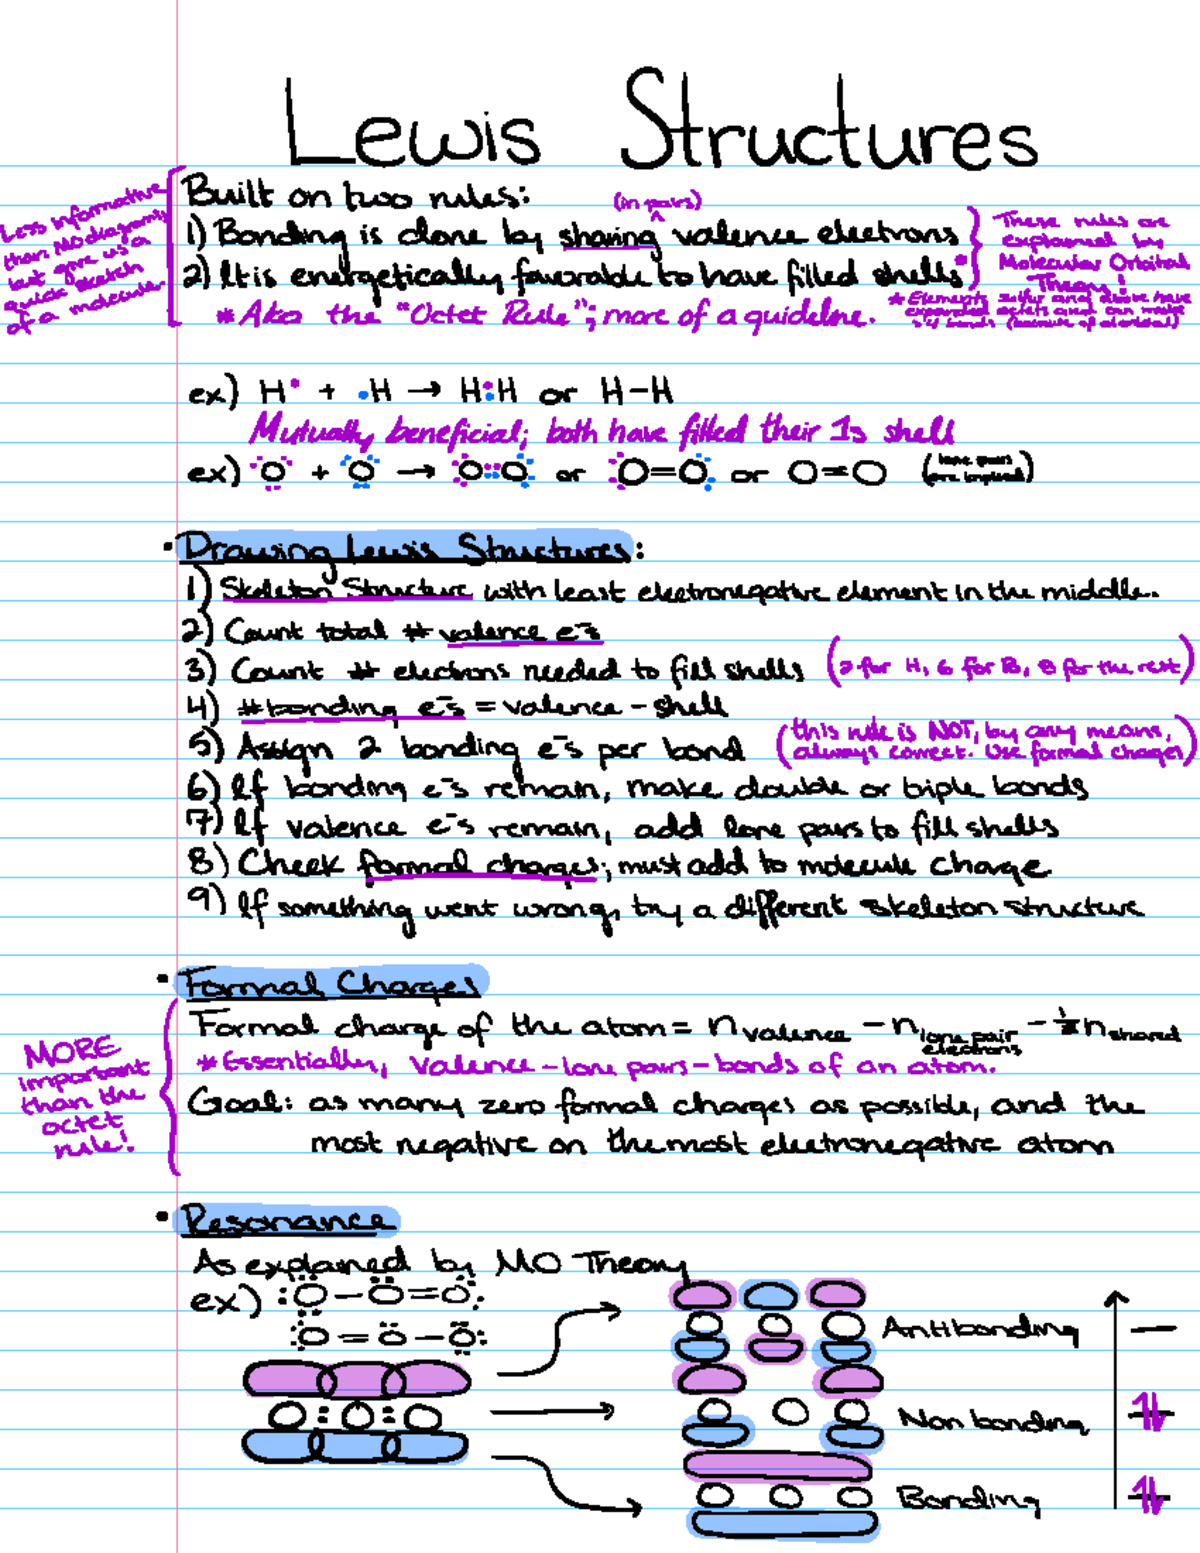 Lewis Structures
Built on two rules:
(in pairs)
1) Bonding is done by sharing ^ valence electrons
2) It is energetically favorable to have filled shells*
* Aka the "Octet Rule"; more of a guideline.
Less informative
than MO diagrams,
but give us a
quick sketch
of a molecule.
These rules are
explained by
Molecular Orbital
Theory!
* Elements sulfur and above have
expanded octets and can make
>4 bonds (because of d orbital)
ex) H• + •H → H:H or H-H
Mutually beneficial; both have filled their 1s shell
ex) O + O → O::O or O=O or O=O (lone pairs
are implied)
• Drawing Lewis Structures:
1) Skeleton Structure with least electronegative element in the middle.
2) Count total # valence e⁻s
3) Count # electrons needed to fill shells (2 for H, 6 for B, 8 for the rest)
4) # bonding e⁻s = valence - shell
5) Assign 2 bonding e⁻s per bond
(this rule is NOT, by any means,
always correct. Use formal charges)
6) If bonding e⁻s remain, make double or triple bonds
7) If valence e⁻s remain, add lone pairs to fill shells
8) Check formal charges; must add to molecule charge
9) If something went wrong, try a different skeleton structure
• Formal Charges
Formal charge of the atom = n valence - n lone pair electrons - ½ n shared
* Essentially, valence - lone pairs - bonds of an atom.
Goal: as many zero formal charges as possible, and the
most negative on the most electronegative atom
MORE
important
than the
octet
rule!
• Resonance
As explained by MO Theory
ex) :O-O=O:
:O=O-O:
Antibonding
Nonbonding
Bonding